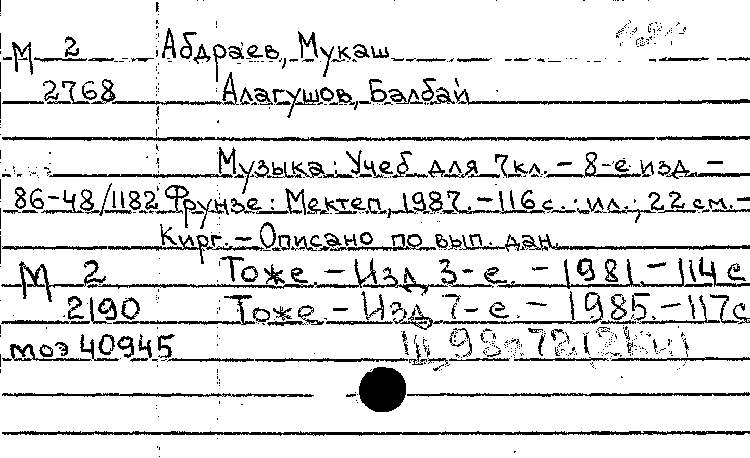 М 2 Абдраев, Мукаш
2768 Алагушов, Балбай
Музыка: Учеб для 7кл. - 8-е изд. -
86-48/1182 Фрунзе: Мектеп, 1987. - 116 с.: ил.; 22 см. -
Кирг. - Описано по вып. дан.
М 2 Тоже. - Изд. 3-е. - 1981. - 114 с
2190 Тоже. - Изд 7-е. - 1985. - 117с
моэ 40945